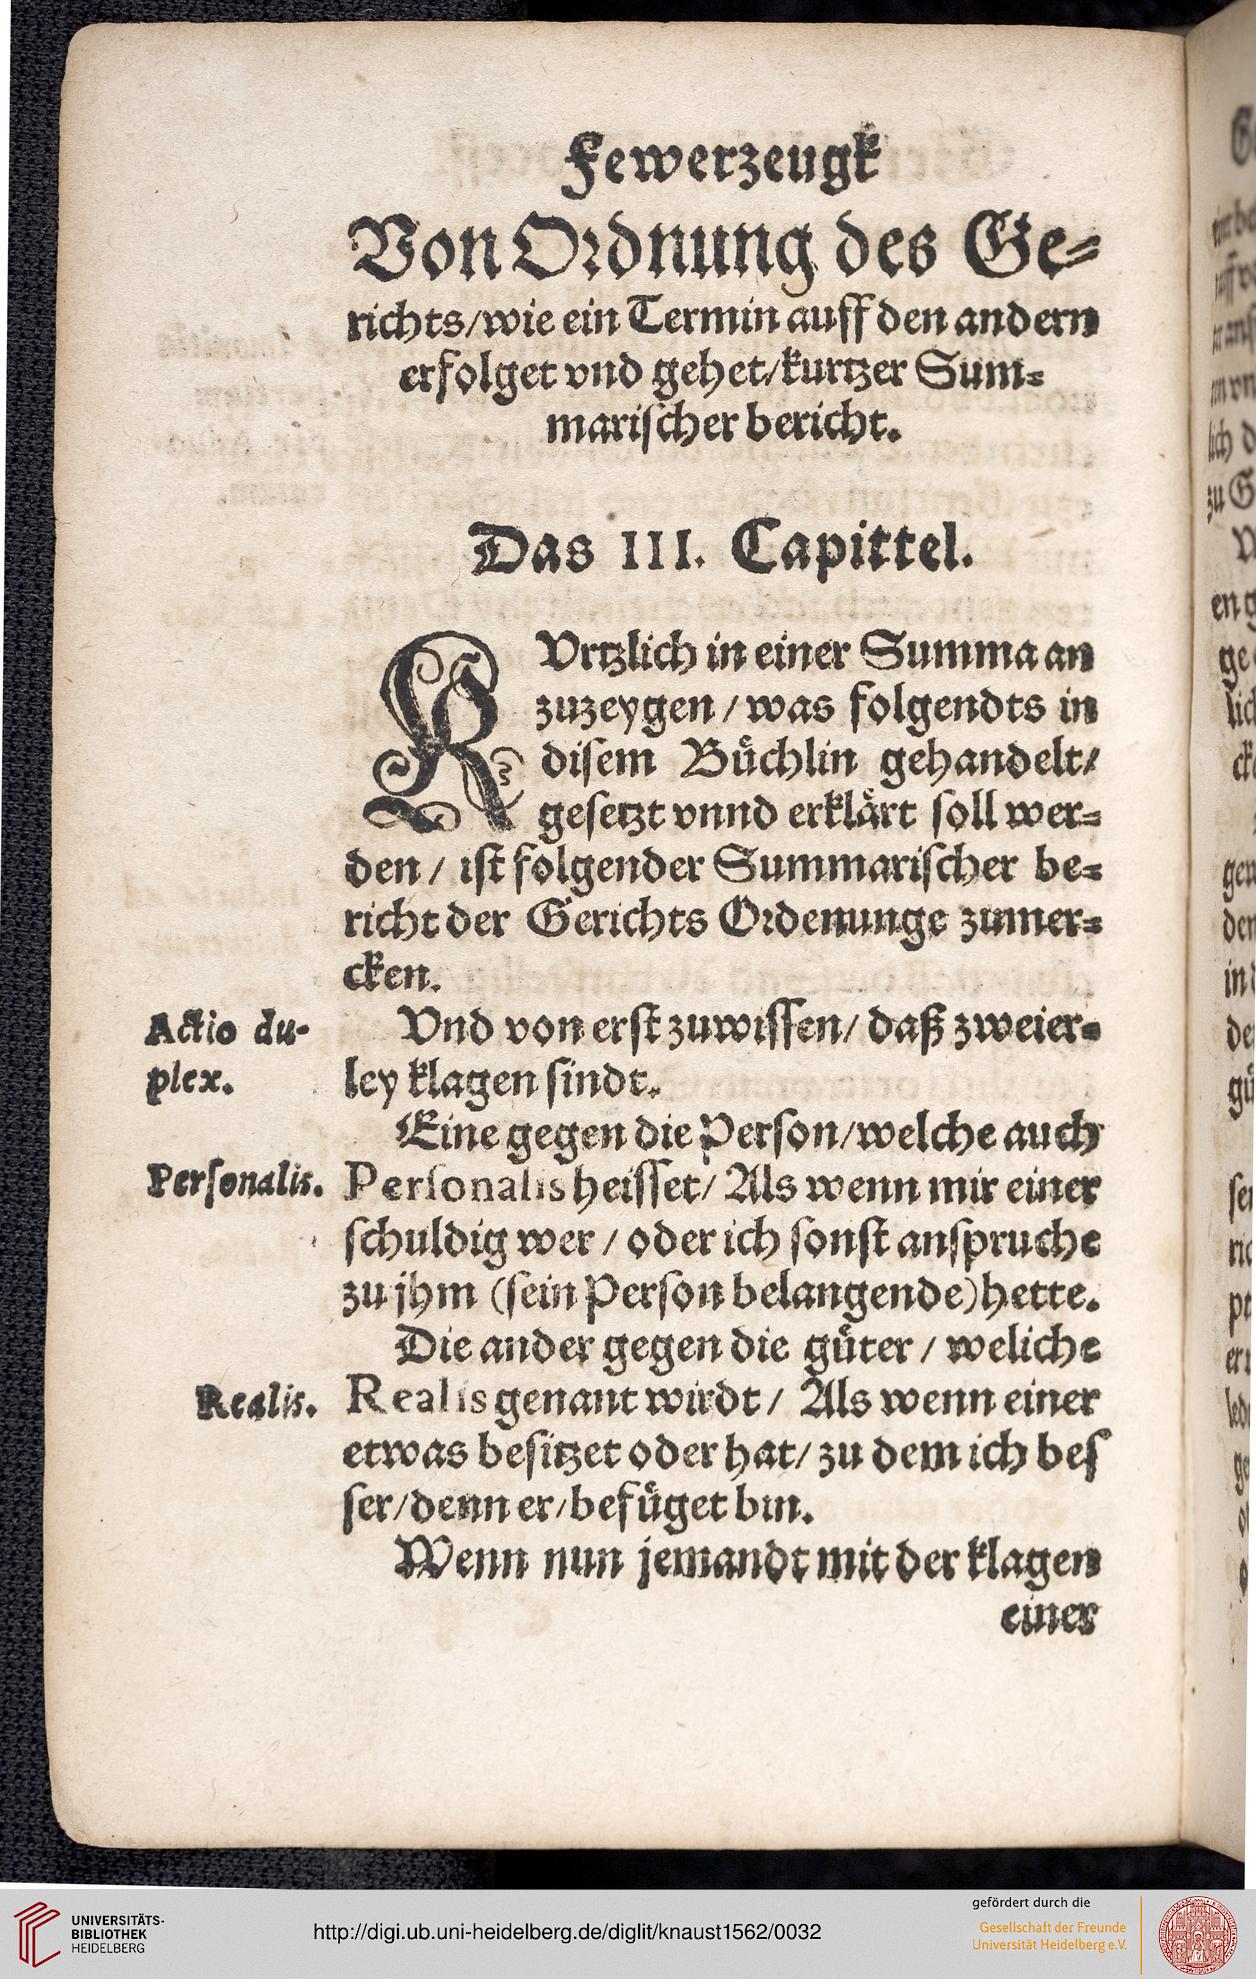 Fewerzeugk
Von Ordnung des Ge⸗
richts/wie ein Termin auff den andern
erfolget vnd gehet/kurtzer Sum⸗
marischer bericht.
Das III. Capittel.
KVrtzlich in einer Summa an
zuzeygen / was folgendts in
disem Büchlin gehandelt/
gesetzt vnnd erklärt soll wer⸗
den / ist folgender Summarischer be⸗
richt der Gerichts Ordenunge zumer⸗
cken.
Actio du-
plex.
Vnd von erst zuwissen/ daß zweier⸗
ley klagen sindt.
Eine gegen die Person/welche auch
Personalis.
Personalis heisset/ Als wenn mir einer
schuldig wer / oder ich sonst anspruche
zu jhm (sein Person belangende) hette.
Die ander gegen die güter / weliche
Realis.
Realis genant wirdt / Als wenn einer
etwas besitzet oder hat/ zu dem ich bes
ser/denn er/befüget bin.
Wenn nun jemandt mit der klagen
einer
UNIVERSITÄTS-
BIBLIOTHEK
HEIDELBERG
http://digi.ub.uni-heidelberg.de/diglit/knaust1562/0032
gefördert durch die
Gesellschaft der Freunde
Universität Heidelberg e.V.